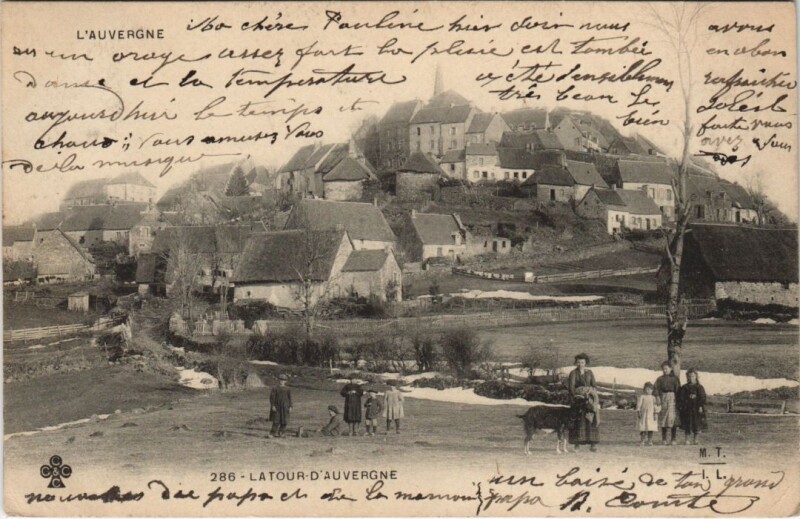 L'AUVERGNE
Ma chère Pauline hier soir nous avons
eu un orage assez fort la pluie est tombée en abon
dance et la température a été sensiblement rafraichie
aujourd'hui le temps est très beau le soleil
chaud ; vous amusez vous bien
de la musique
286 - LATOUR-D'AUVERGNE
M. T.
I. L.
C C C C
nouvelles de papa et de la maman
un baisé de ton grand
papa A. Comte